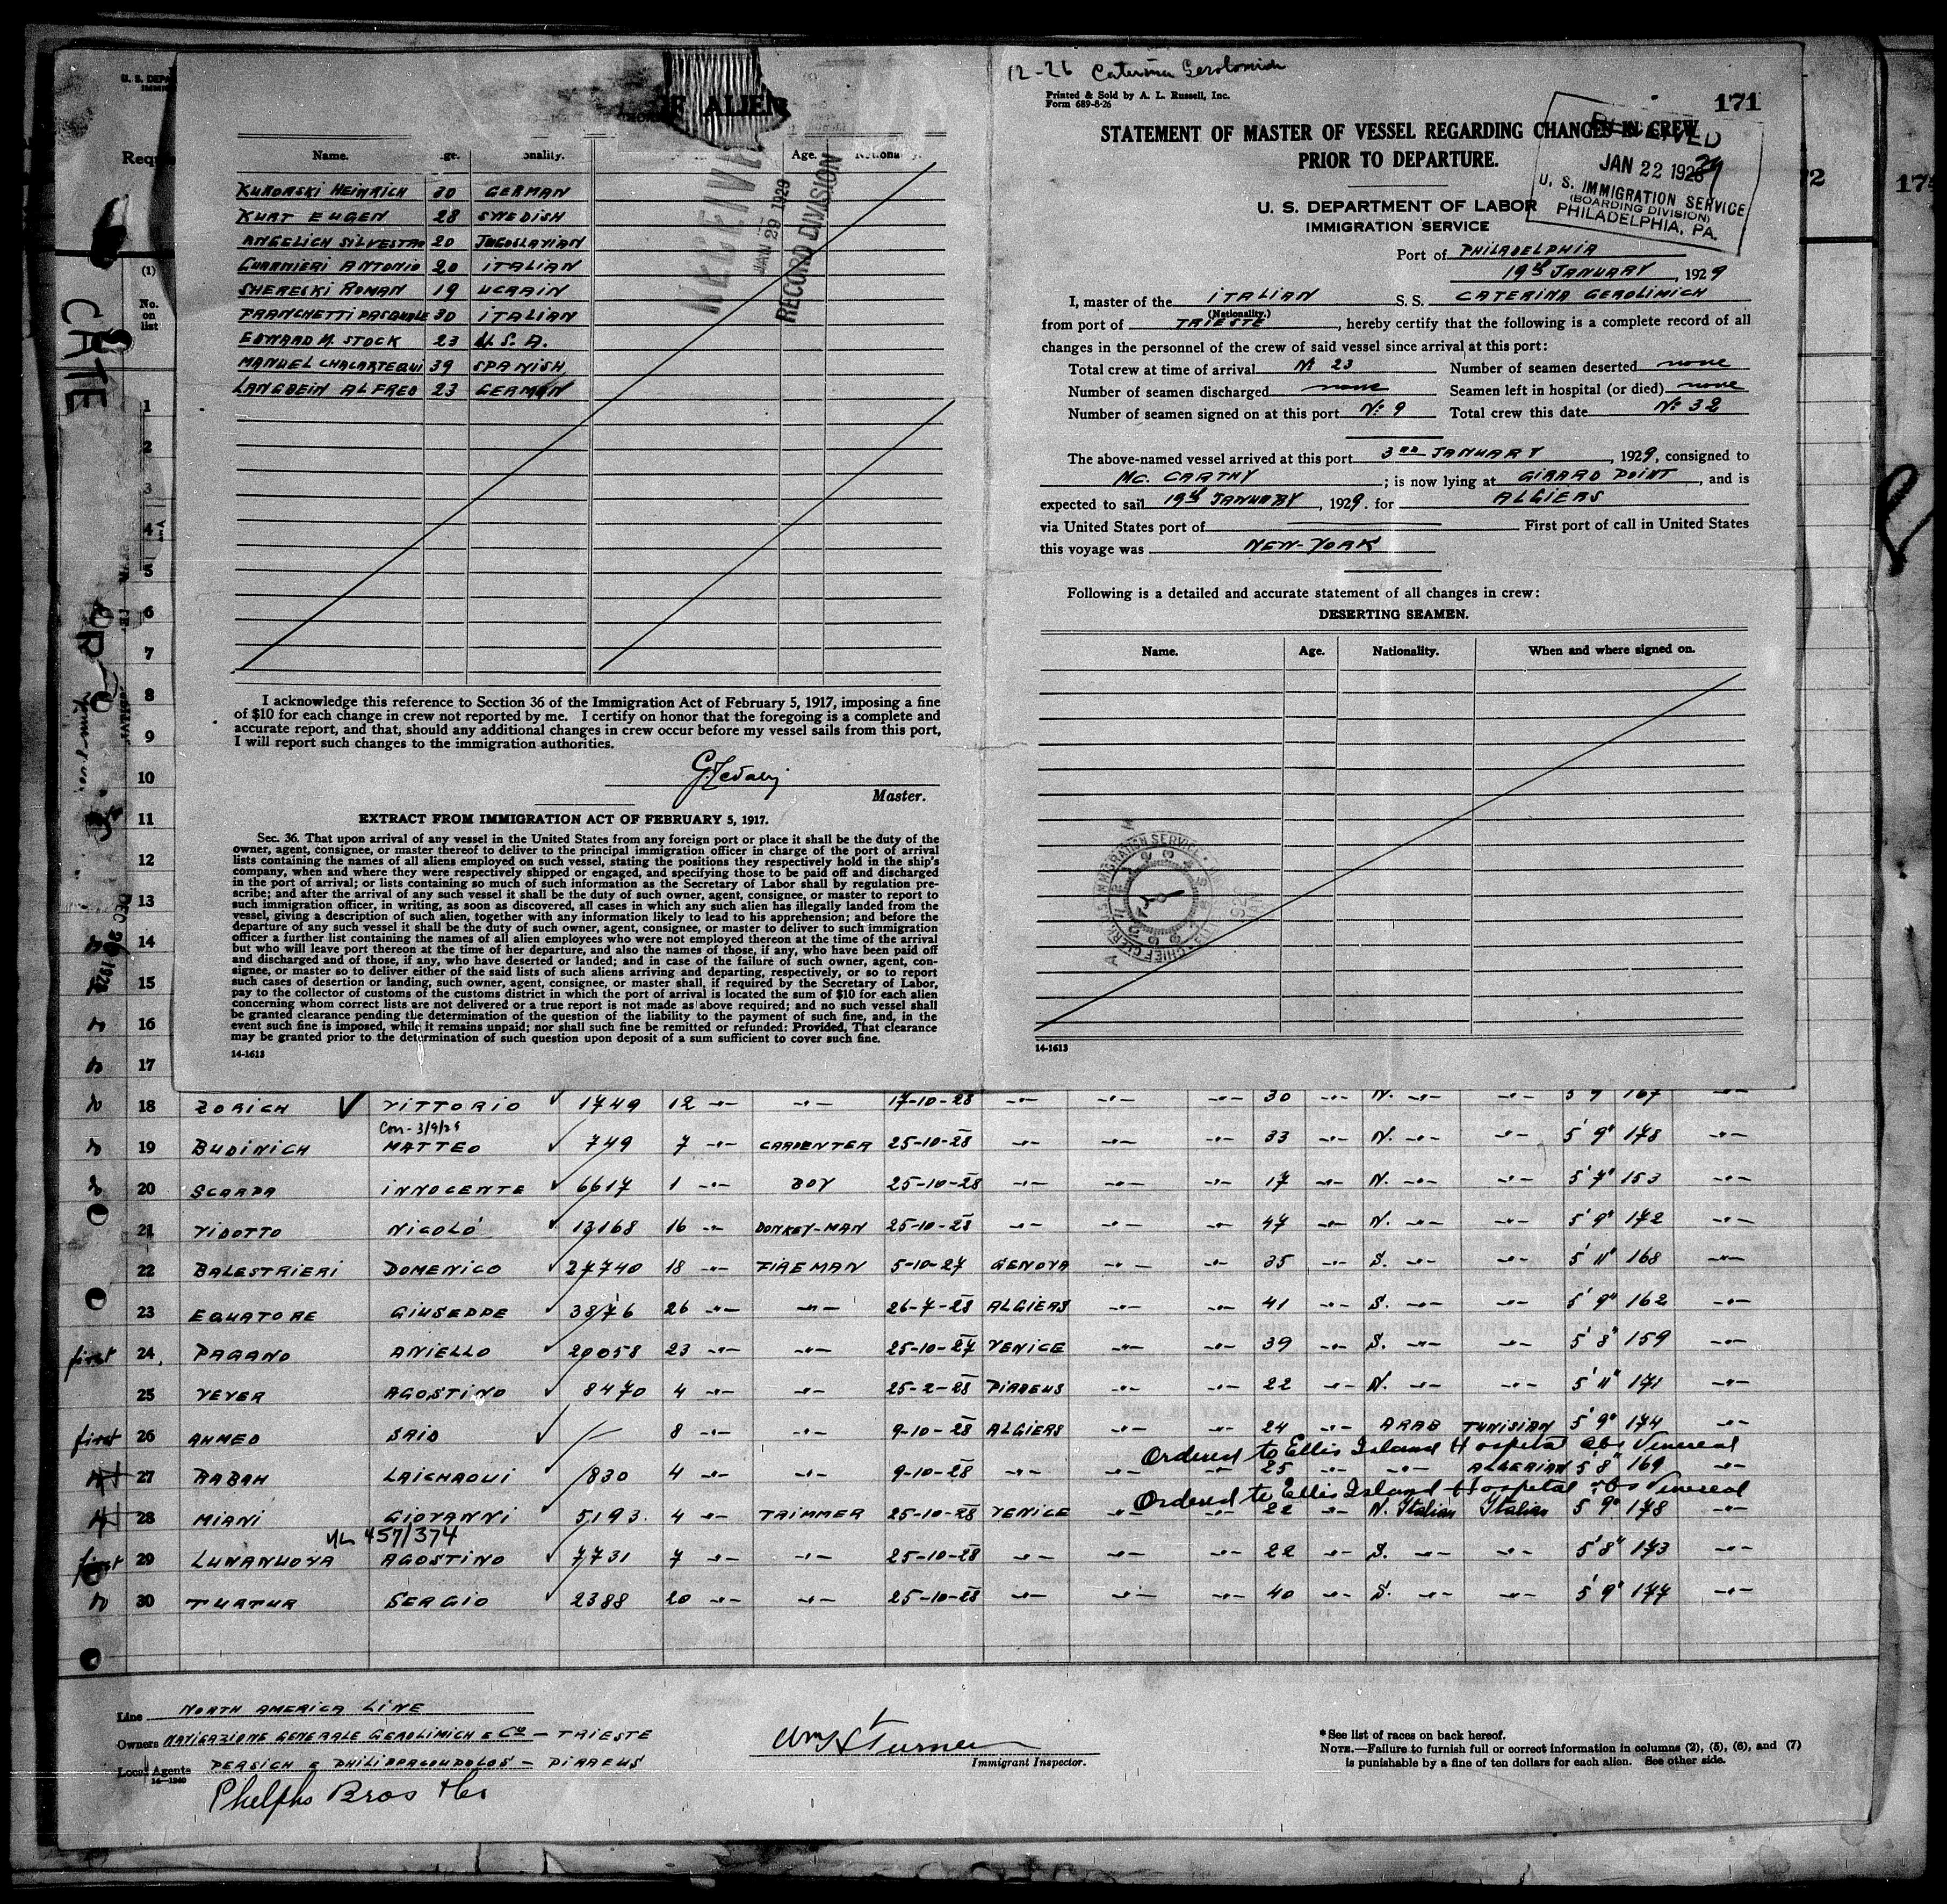 12-26 Caterina Gerolomich
U. S. DEPA
Requ
F ALIEN
Name.
ge.
onality.
Age.
RECEIVED
JAN 29 1929
RECORD DIVISION
KURORSKI HEINRICH 30 GERMAN
KURT EUGEN 28 SWEDISH
ANGELICH SILVESTRO 20 JUGOSLAVIAN
GUARNIERI ANTONIO 20 ITALIAN
SHERESKI ROMAN 19 UCRAIN
FRANCHETTI PASQUALE 30 ITALIAN
EDWARD M. STOCK 23 U.S.A.
MANUEL CHACARTEGUI 39 SPANISH
LANGBEIN ALFRED 23 GERMAN
I acknowledge this reference to Section 36 of the Immigration Act of February 5, 1917, imposing a fine
of $10 for each change in crew not reported by me. I certify on honor that the foregoing is a complete and
accurate report, and that, should any additional changes in crew occur before my vessel sails from this port,
I will report such changes to the immigration authorities.
Master.
EXTRACT FROM IMMIGRATION ACT OF FEBRUARY 5, 1917.
Sec. 36. That upon arrival of any vessel in the United States from any foreign port or place it shall be the duty of the
owner, agent, consignee, or master thereof to deliver to the principal immigration officer in charge of the port of arrival
lists containing the names of all aliens employed on such vessel, stating the positions they respectively hold in the ship's
company, when and where they were respectively shipped or engaged, and specifying those to be paid off and discharged
in the port of arrival; or lists containing so much of such information as the Secretary of Labor shall by regulation pre-
scribe; and after the arrival of any such vessel it shall be the duty of such owner, agent, consignee, or master to report to
such immigration officer, in writing, as soon as discovered, all cases in which any such alien has illegally landed from the
vessel, giving a description of such alien, together with any information likely to lead to his apprehension; and before the
departure of any such vessel it shall be the duty of such owner, agent, consignee, or master to deliver to such immigration
officer a further list containing the names of all alien employees who were not employed thereon at the time of the arrival
but who will leave port thereon at the time of her departure, and also the names of those, if any, who have been paid off
and discharged and of those, if any, who have deserted or landed; and in case of the failure of such owner, agent, con-
signee, or master so to deliver either of the said lists of such aliens arriving and departing, respectively, or so to report
such cases of desertion or landing, such owner, agent, consignee, or master shall, if required by the Secretary of Labor,
pay to the collector of customs of the customs district in which the port of arrival is located the sum of $10 for each alien
concerning whom correct lists are not delivered or a true report is not made as above required; and no such vessel shall
be granted clearance pending the determination of the question of the liability to the payment of such fine, and, in the
event such fine is imposed, while it remains unpaid; nor shall such fine be remitted or refunded: Provided, That clearance
may be granted prior to the determination of such question upon deposit of a sum sufficient to cover such fine.
14-1613
Printed & Sold by A. L. Russell, Inc.
Form 689-8-26
171
STATEMENT OF MASTER OF VESSEL REGARDING CHANGES IN CREW
PRIOR TO DEPARTURE.
RECEIVED
JAN 22 1929
U. S. IMMIGRATION SERVICE
(BOARDING DIVISION)
PHILADELPHIA, PA.
U. S. DEPARTMENT OF LABOR
IMMIGRATION SERVICE
Port of PHILADELPHIA
19th JANUARY, 1929
I, master of the ITALIAN S. S. CATERINA GEROLIMICH
(Nationality.)
from port of TRIESTE, hereby certify that the following is a complete record of all
changes in the personnel of the crew of said vessel since arrival at this port:
Total crew at time of arrival N° 23 Number of seamen deserted none
Number of seamen discharged none Seamen left in hospital (or died) none
Number of seamen signed on at this port N° 9 Total crew this date N° 32
The above-named vessel arrived at this port 3rd JANUARY, 1929, consigned to
MC. CARTHY; is now lying at GIRARD POINT, and is
expected to sail 19th JANUARY, 1929. for ALGIERS
via United States port of First port of call in United States
this voyage was NEW-YORK
Following is a detailed and accurate statement of all changes in crew:
DESERTING SEAMEN.
Name. Age. Nationality. When and where signed on.
14-1613
(1)
No.
on
list
CATE
1
2
3
4
5
6
7
8
9
10
11
12
13
14
15
16
17
18 ZORICH VITTORIO 1749 12 -"- -"- 17-10-28 -"- -"- -"- 30 -"- N. -"- -"- 5 9 167 -"-
Con-3/9/29
19 BUDINICH MATTEO 749 7 -"- CARPENTER 25-10-28 -"- -"- -"- 33 -"- N. -"- -"- 5' 9" 178 -"-
20 SCARPA INNOCENTE 6617 1 -"- BOY 25-10-28 -"- -"- -"- 17 -"- N. -"- -"- 5' 7" 153 -"-
21 VIDOTTO NICOLÓ 13168 16 -"- DONKEY-MAN 25-10-28 -"- -"- -"- 47 -"- N. -"- -"- 5' 9" 172 -"-
22 BALESTRIERI DOMENICO 27740 18 -"- FIREMAN 5-10-27 GENOVA -"- -"- 35 -"- S. -"- -"- 5' 11" 168 -"-
23 EQUATORE GIUSEPPE 3876 26 -"- -"- 26-7-28 ALGIERS -"- -"- 41 -"- S. -"- -"- 5' 9" 162 -"-
first 24 PAGANO ANIELLO 20058 23 -"- -"- 25-10-27 VENICE -"- -"- 39 -"- S. -"- -"- 5' 8" 159 -"-
25 VEYER AGOSTINO 8470 4 -"- -"- 25-2-28 PIRAEUS -"- -"- 22 -"- N. -"- -"- 5' 11" 171 -"-
first 26 AHMED SAID 8 -"- -"- 9-10-28 ALGIERS -"- -"- 24 -"- ARAB TUNISIAN 5' 9" 174 -"-
Ordered to Ellis Island Hospital obs Venereal
27 RABAH LAICHAOUI 1830 4 -"- -"- 9-10-28 -"- -"- -"- 25 -"- -"- ALGERIAN 5' 8" 169 -"-
Ordered to Ellis Island Hospital obs Venereal
28 MIANI GIOVANNI 5193 4 -"- TRIMMER 25-10-28 VENICE -"- -"- 22 -"- N. Italian Italian 5 9" 178 -"-
457/374
first 29 LUNANUOVA AGOSTINO 7731 7 -"- -"- 25-10-28 -"- -"- -"- 22 -"- S. -"- -"- 5' 8" 173 -"-
30 TURTUR SERGIO 2388 20 -"- -"- 25-10-28 -"- -"- -"- 40 -"- S. -"- -"- 5' 9" 177 -"-
Line NORTH AMERICA LINE
Owners NAVIGAZIONE GENERALE GEROLIMICH & Co - TRIESTE
Local Agents PERSICH E PHILIPPACOUDOLOS - PIRAEUS
14-1240
Phelphs Bros & Co
Wm Turner
Immigrant Inspector.
*See list of races on back hereof.
NOTE.—Failure to furnish full or correct information in columns (2), (5), (6), and (7)
is punishable by a fine of ten dollars for each alien. See other side.